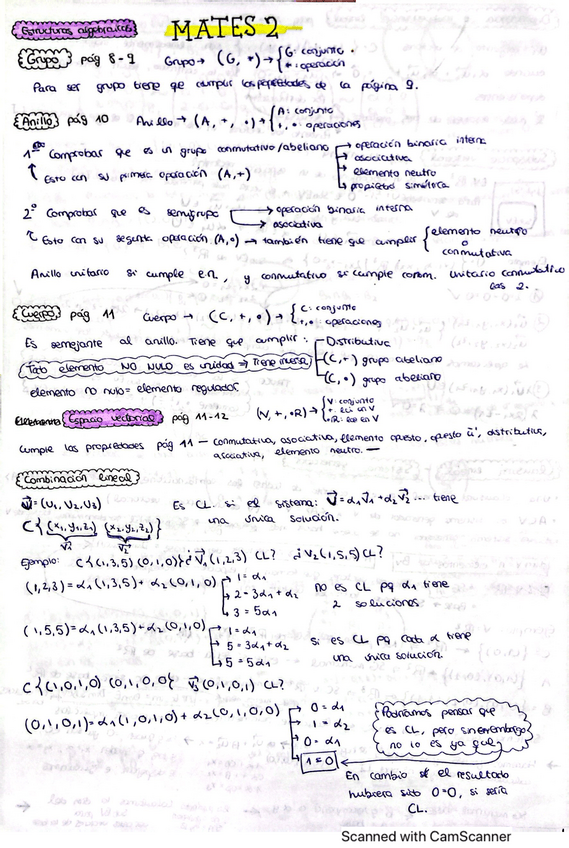 Estructuras algebraicas MATES 2
Grupo pág 8-9 Grupo → (G, *) → { G: conjunto
* : operación
Para ser grupo tiene que cumplir las propiedades de la página 9.
Anillo pág 10 Anillo → (A, +, •) → { A: conjunto
+, • operaciones
1º Comprobar que es un grupo conmutativo/abeliano → operación binaria interna
→ asociativa
↑ Esto con su primera operación (A,+) → elemento neutro
→ propiedad simétrica
2º Comprobar que es semigrupo → operación binaria interna
→ asociativa
Esto con su segunda operación (A,•) → también tiene que cumplir { elemento neutro
o
conmutativa
Anillo unitario si cumple e.n., y conmutativo si cumple conm. unitario conmutativo
las 2.
Cuerpo pág 11 Cuerpo → (C, +, •) → { C: conjunto
+, • operaciones
Es semejante al anillo. Tiene que cumplir: Distributiva
Todo elemento NO NULO es unidad ⇒ Tiene inverso (C,+) grupo abeliano
(C,•) grupo abeliano
elemento no nulo = elemento
Espacio vectorial pág 11-12 (V, +, •R) → { V: conjunto
+: en V
•R: en V
cumple las propiedades pág 11 — conmutativa, asociativa, elemento opuesto, opuesto distributiva,
asociativa, elemento neutro. —
Combinación lineal
= (U₁, U₂, U₃) Es CL. si el sistema: V⃗ = α₁V⃗₁ + α₂V⃗₂ ... tiene
C{(x₁,y₁,z₁) (x₂,y₂,z₂)} una única solución.
V⃗₁ V⃗₂
Ejemplo: C{(1,3,5) (0,1,0)} ¿V⃗₁(1,2,3) CL? ¿V₂(1,5,5) CL?
(1,2,3) = α₁(1,3,5) + α₂(0,1,0) → 1 = α₁
→ 2 = 3α₁ + α₂ no es CL pq α₁ tiene
→ 3 = 5α₁ 2 soluciones
(1,5,5) = α₁(1,3,5) + α₂(0,1,0) → 1 = α₁
→ 5 = 3α₁ + α₂ si es CL pq, cada α tiene
→ 5 = 5α₁ una única solución.
C{(1,0,1,0) (0,1,0,0)} V⃗₃(0,1,0,1) CL?
(0,1,0,1) = α₁(1,0,1,0) + α₂(0,1,0,0) → 0 = α₁
→ 1 = α₂
→ 0 = α₁
→ 1 = 0
Podríamos pensar que
es CL, pero sin embargo
no lo es ya que
En cambio si el resultado
hubiera sido 0=0, si sería
CL.
Scanned with CamScanner